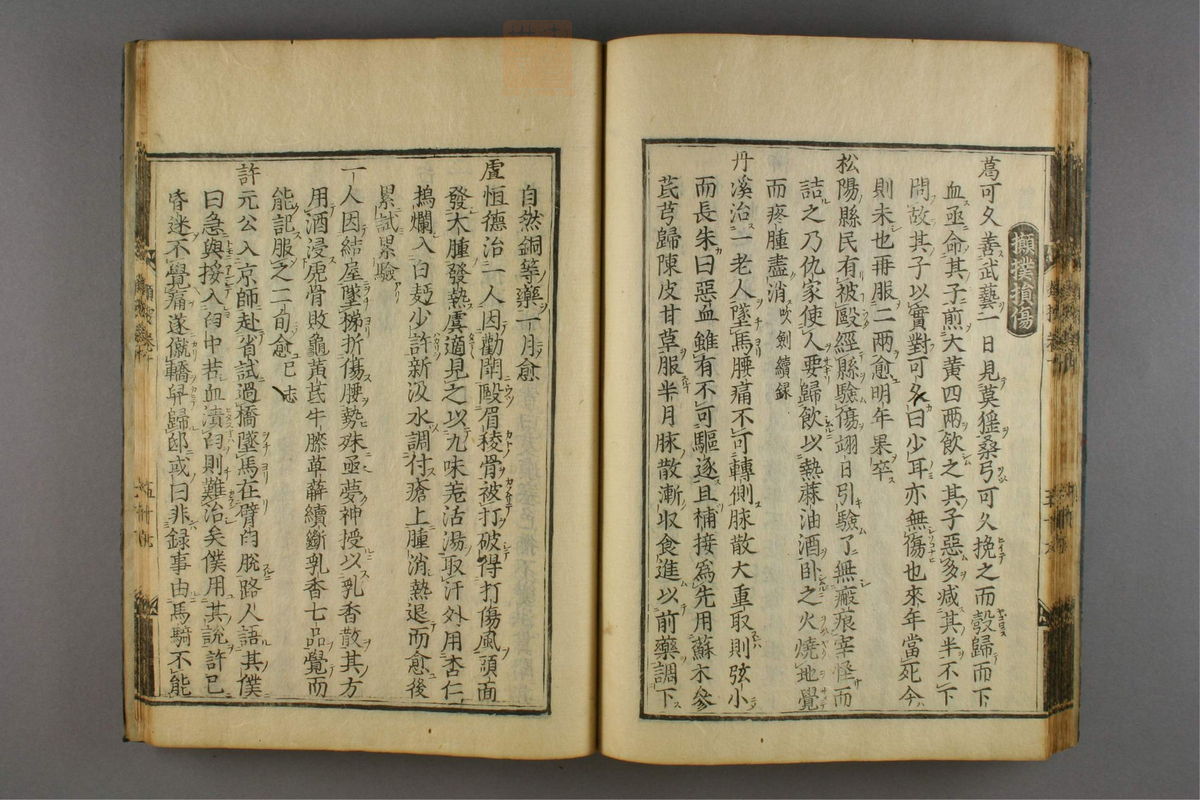 攧撲損傷
葛可久善武藝一日見莫猺桑弓可久挽之而彀歸而下
血亟命其子煎大黃四兩飲之其子惡多減其半不下
問故其子以實對可久曰少耳亦無傷也來年當死今
則未也再服二兩愈明年果卒
松陽縣民有被毆經縣驗傷翊日引驗了無瘢痕宰怪而
詰之乃仇家使人要歸飲以熱蔴油酒卧之火燒地覺
而疼腫盡消 吹劍續録
丹溪治一老人墜馬腰痛不可轉側脉散大重取則弦小
而長朱曰惡血雖有不可驅逐且補接爲先用蘇木參
芪芎歸陳皮甘草服半月脉散漸收食進以前藥調下
自然銅等藥一月愈
盧恒德治一人因勸鬧毆眉稜骨被打破得打傷風頭面
發大腫發熱虞適見之以九味羌活湯取汗外用杏仁
搗爛入白麪少許新汲水調付瘡上腫消熱退而愈後
累試累驗
一人因結屋墜梯折傷腰勢殊亟夢神授以乳香散其方
用酒浸虎骨敗龜黃芪牛膝萆薢續斷乳香七品覺而
能記服之二旬愈 已志
許元公入京師赴省試過橋墜馬在臂臼脫路人語其僕
曰急與挼入臼中若血漬臼則難治矣僕用其說許已
昏迷不覺痛遂僦轎舁歸邸或曰非録事由馬騎不能